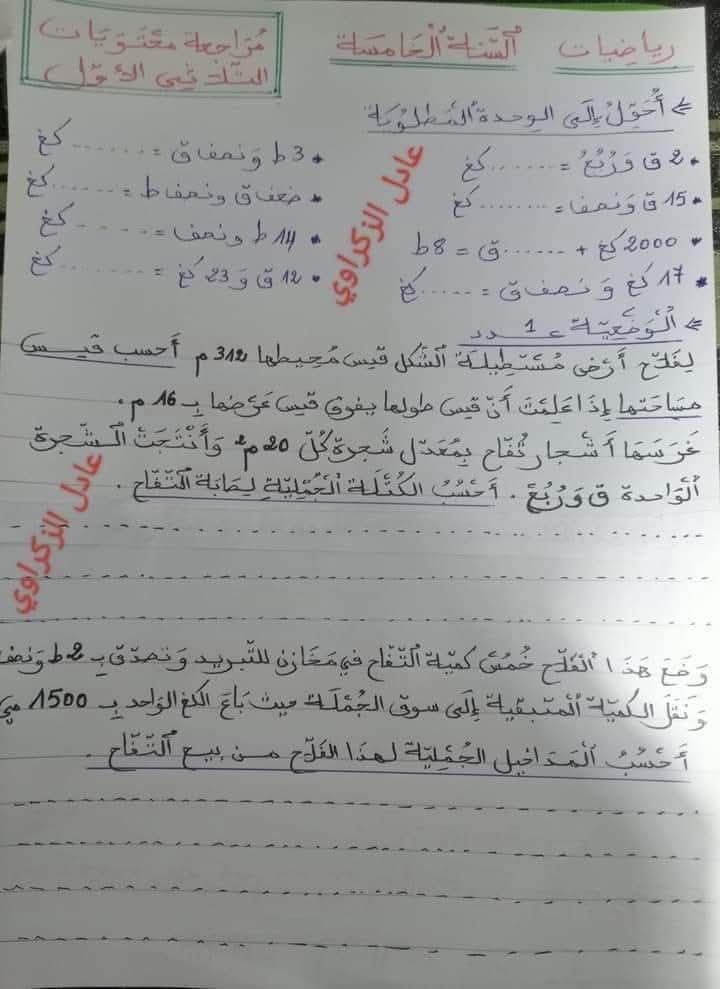 رياضيات
السّنة الخامسة
مُراجعة محتويات
الثلاثي الأوّل
⇐ أُحَوِّلُ إِلَى الوحدة المطلوبة
• 2 ق وَرُبُعُ = ........ كغ
• 3 ط وَ نصف ق = ........ كغ
• 15 ق وَ نصف = ........ كغ
• ضعف ق ونصف ط = ........ كغ
• 2000 كغ + ........ ق = 8 ط
• 14 ط ونصف = ........ كغ
• 17 كغ وَ نصف ق = ........ كغ
• 12 ق وَ 23 كغ = ........ كغ
⇐ الْوَضْعِيّة عـ 1 ـدد
لِفَلّاحٍ أَرْض مُسْتَطِيلَة الشّكل قيس مُحِيطها 312 م أحسب قيس
مساحتها إذا عَلِمْتَ أنّ قيس طولها يفوق قيس عَرْضها بِـ 16 م.
غَرَسَهَا أَشْجار تُفّاح بِمُعَدّل شَجرة كُلّ 20 م² وَأَنْتَجَتْ الشّجرة
الْوَاحدة ق وَرُبُعُ. أَحْسُبُ الكُتْلَة الْجُمْلِيّة لِصابة التّفّاح.
وَضَعَ هَذا الْفَلّاح خُمُسَ كميّة التّفّاح في مَخَازن للتّبريد وَ تصدّق بِـ 2 ط وَنصف
وَ نَقَلَ الكميّة الْمتبقية إِلَى سوق الجُمْلَة حيث بَاعَ الكغ الواحد بِـ 1500 مي
أَحْسُبُ الْمَدَاخيل الجُمْلِيّة لهذا الفَلّاح من بيع التّفّاح.
عادل الزكراوي
عادل الزكراوي